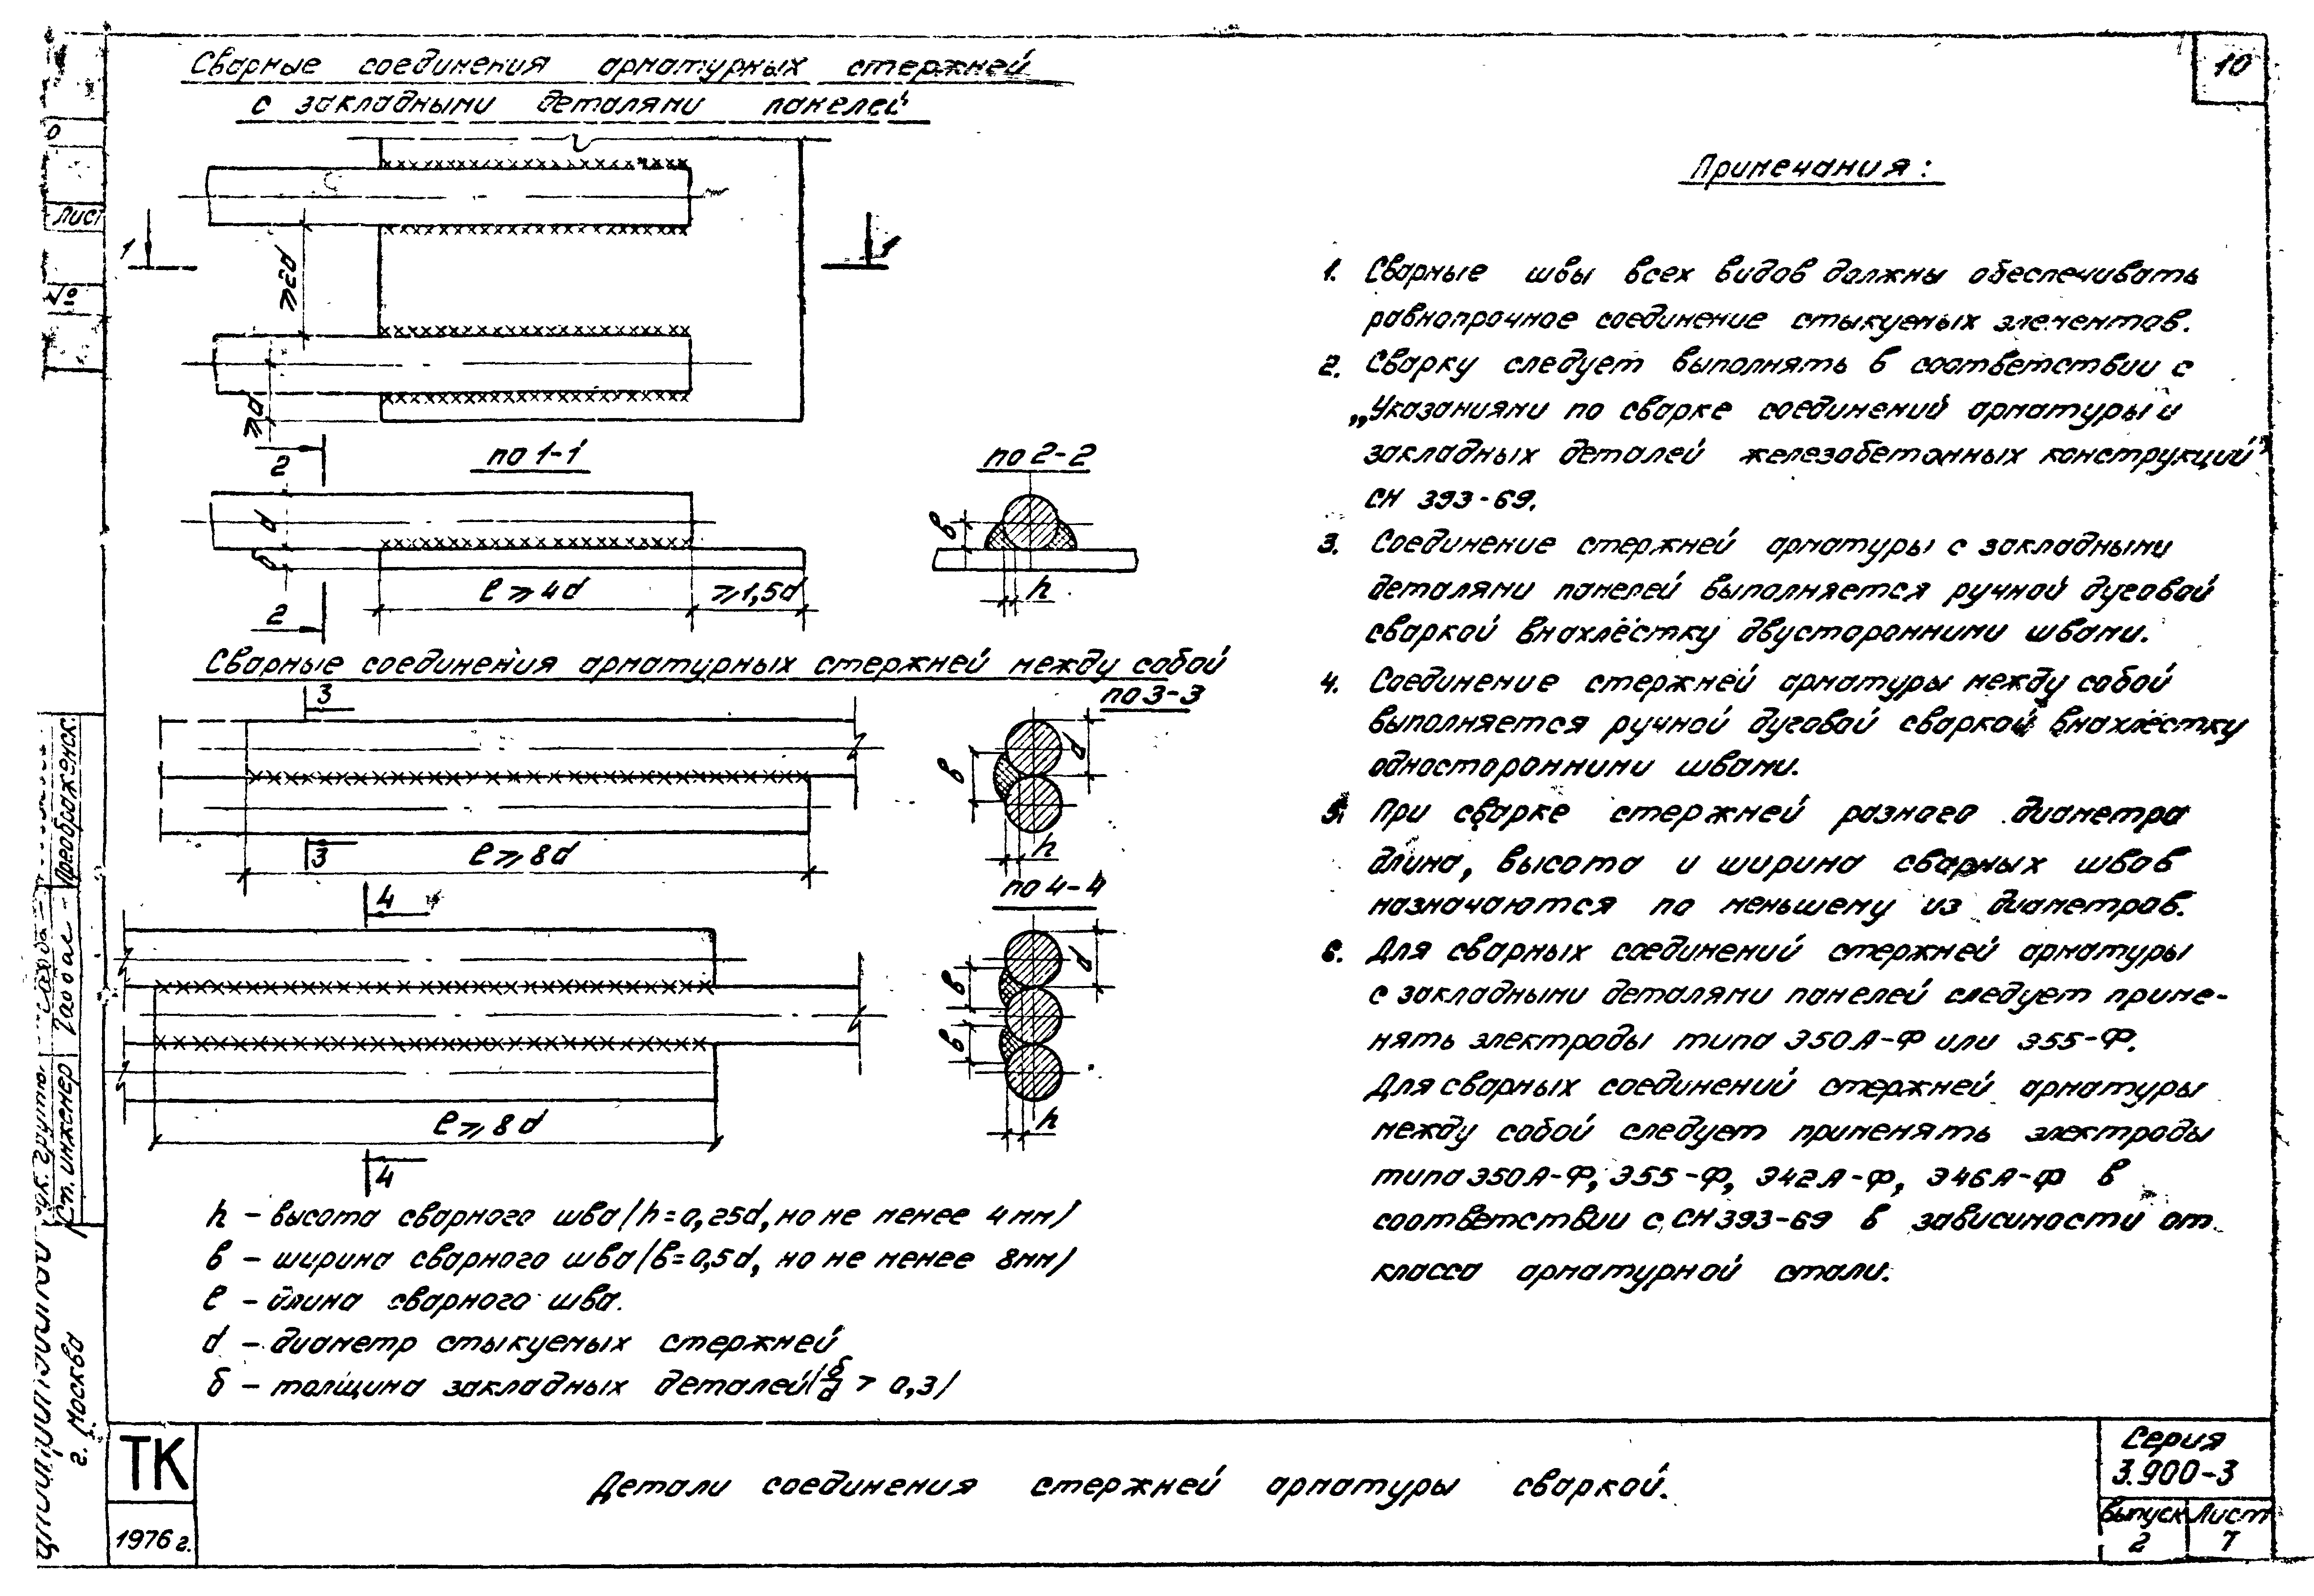 Сварные соединения арматурных стержней
с закладными деталями панелей
10
Лист
1
1
≥2d
≥d
2
по 1-1
по 2-2
d
δ
в
h
ℓ ≥ 4d
≥1,5d
2
Сварные соединения арматурных стержней между собой
3
по 3-3
d
в
h
3
ℓ ≥ 8d
4
по 4-4
d
в
в
h
ℓ ≥ 8d
4
h – высота сварного шва /h=0,25d, но не менее 4мм/
в – ширина сварного шва /в=0,5d, но не менее 8мм/
ℓ – длина сварного шва.
d – диаметр стыкуемых стержней
δ – толщина закладных деталей /δ/d > 0,3/
Примечания:
1. Сварные швы всех видов должны обеспечивать
равнопрочное соединение стыкуемых элементов.
2. Сварку следует выполнять в соответствии с
„Указаниями по сварке соединений арматуры и
закладных деталей железобетонных конструкций"
СН 393-69.
3. Соединение стержней арматуры с закладными
деталями панелей выполняется ручной дуговой
сваркой внахлёстку двусторонними швами.
4. Соединение стержней арматуры между собой
выполняется ручной дуговой сваркой внахлёстку
односторонними швами.
5. При сварке стержней разного диаметра
длина, высота и ширина сварных швов
назначаются по меньшему из диаметров.
6. Для сварных соединений стержней арматуры
с закладными деталями панелей следует приме-
нять электроды типа Э50А-Ф или Э55-Ф.
Для сварных соединений стержней арматуры
между собой следует применять электроды
типа Э50А-Ф, Э55-Ф, Э42А-Ф, Э46А-Ф в
соответствии с СН 393-69 в зависимости от
класса арматурной стали.
Ст. инженер
Преображенск.
г. Москва
ТК
1976 г.
Детали соединения стержней арматуры сваркой.
Серия
3.900-3
Выпуск Лист
2 7